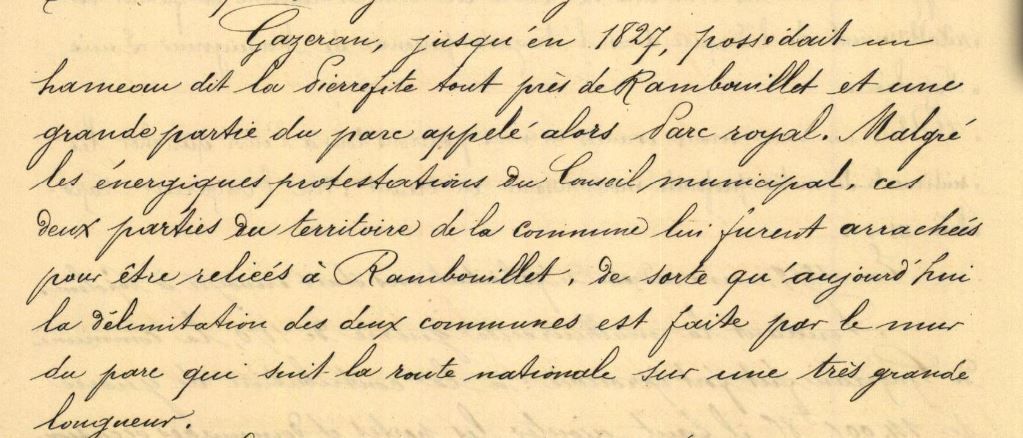 Gazeran, jusqu'en 1827, possédait un
hameau dit la Pierrefite tout près de Rambouillet et une
grande partie du parc appelé alors Parc royal. Malgré
les énergiques protestations du Conseil municipal, ces
deux parties du territoire de la commune lui furent arrachées
pour être reliées à Rambouillet, de sorte qu'aujourd'hui
la délimitation des deux communes est faite par le mur
du parc qui suit la route nationale sur une très grande
longueur.